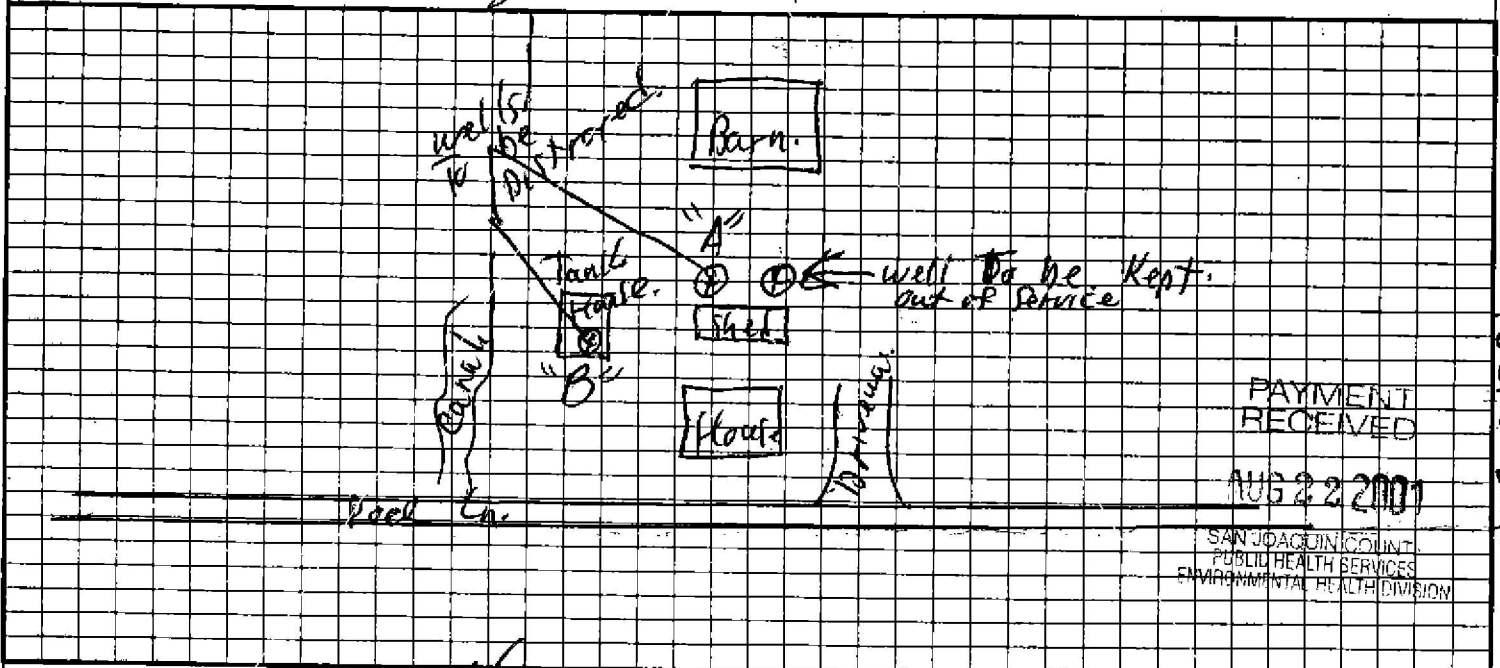 wells
to be
Distroyed.
Barn.
"A"
Tank
House.
well To be Kept.
out of Service
Shed
"B"
Canal
House
Driveway.
Ln.
PAYMENT
RECEIVED
AUG 22 2001
SAN JOAQUIN COUNT
PUBLIC HEALTH SERVICES
ENVIRONMENTAL HEALTH DIVISION